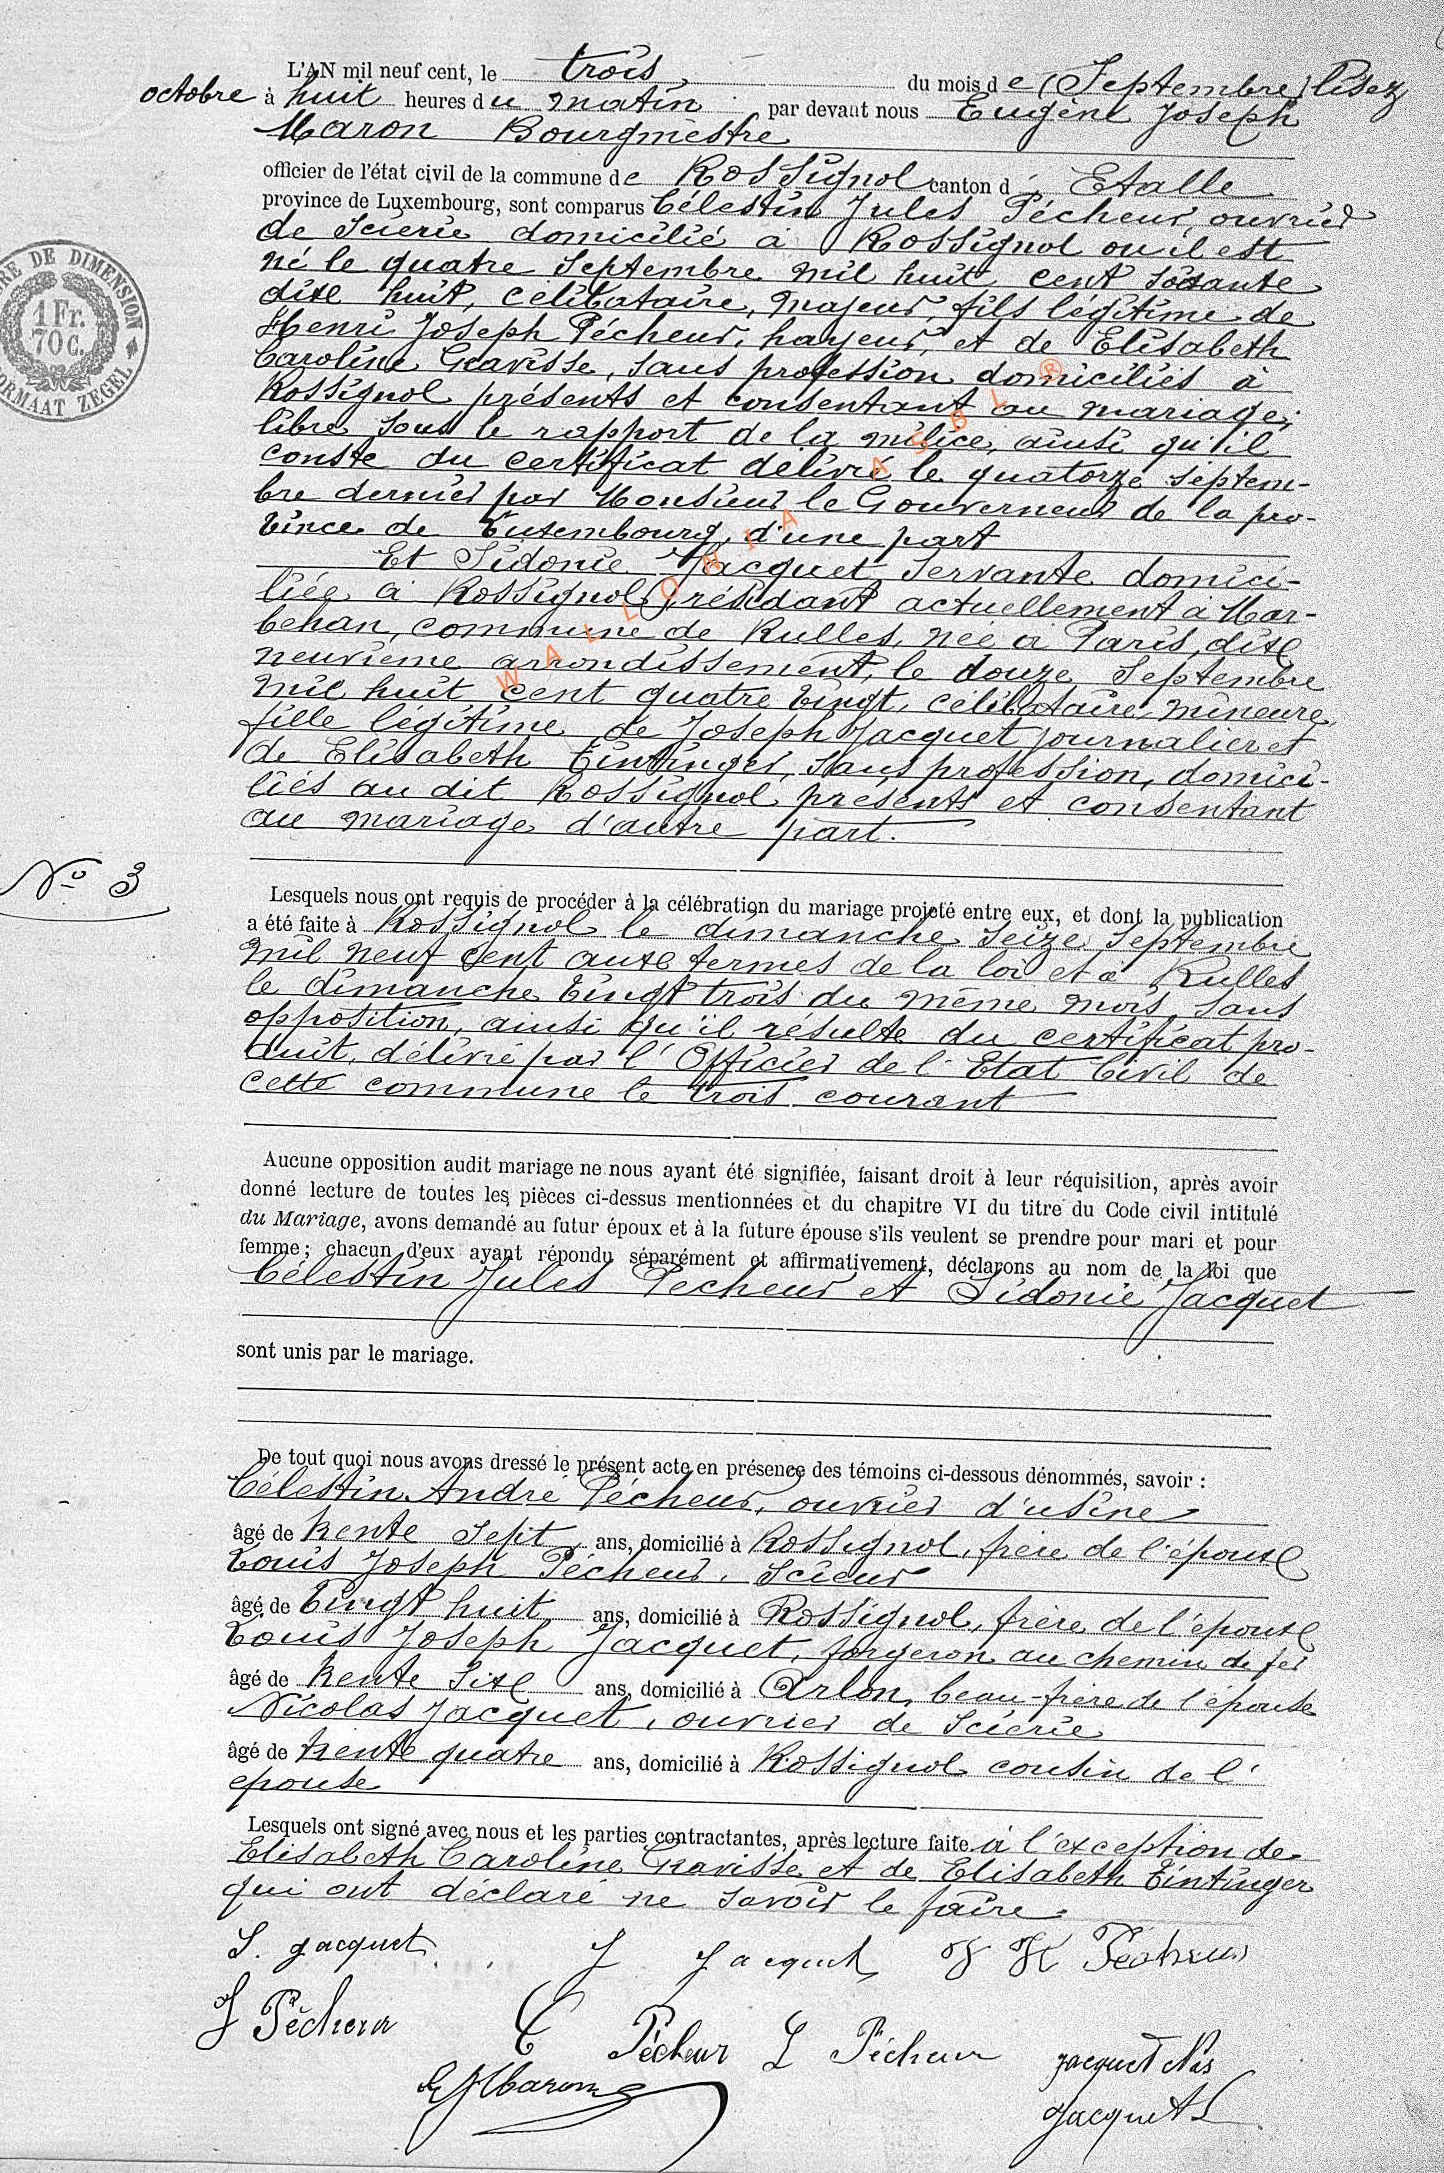 L'AN mil neuf cent, le trois, du mois de (Septembre) lisez
octobre à huit heures du matin par devant nous Eugène Joseph
Maron Bourgmestre
officier de l'état civil de la commune de Rossignol canton d'Etalle
province de Luxembourg, sont comparus Célestin Jules Pécheur, ouvrier
de scierie domicilié à Rossignol ou il est
né le quatre Septembre mil huit cent soixante
dix huit, célibataire, majeur, fils légitime de
Henri Joseph Pécheur, hayeur, et de Elisabeth
Caroline Gravisse, sans profession domiciliés à
Rossignol présents et consentant au mariage;
libre sous le rapport de la milice, ainsi qu'il
conste du certificat délivré le quatorze septem-
bre dernier par Monsieur le Gouverneur de la pro-
vince de Luxembourg, d'une part
Et Sidonie Jacquet, servante domici-
liée à Rossignol, résidant actuellement à Mar-
behan, commune de Rulles, née à Paris, dix
neuvième arrondissement, le douze Septembre
mil huit cent quatre vingt, célibataire, mineure,
fille légitime de Joseph Jacquet journalier et
de Elisabeth Eintinger, sans profession, domici-
liés au dit Rossignol présents et consentant
au mariage d'autre part.
No 3
Lesquels nous ont requis de procéder à la célébration du mariage projeté entre eux, et dont la publication
a été faite à Rossignol le dimanche seize Septembre
mil neuf cent aux termes de la loi et à Rulles
le dimanche vingt trois du même mois, sans
opposition, ainsi qu'il résulte du certificat pro-
duit, délivré par l'Officier de l'Etat Civil de
cette commune le trois courant
Aucune opposition audit mariage ne nous ayant été signifiée, faisant droit à leur réquisition, après avoir
donné lecture de toutes les pièces ci-dessus mentionnées et du chapitre VI du titre du Code civil intitulé
du Mariage, avons demandé au futur époux et à la future épouse s'ils veulent se prendre pour mari et pour
femme; chacun d'eux ayant répondu séparément et affirmativement, déclarons au nom de la loi que
Célestin Jules Pecheur et Sidonie Jacquet
sont unis par le mariage.
De tout quoi nous avons dressé le présent acte en présence des témoins ci-dessous dénommés, savoir :
Célestin André Pécheur, ouvrier d'usine
âgé de trente sept ans, domicilié à Rossignol, frère de l'époux
Louis Joseph Pécheur, Scieur
âgé de vingt huit ans, domicilié à Rossignol, frère de l'époux
Louis Joseph Jacquet, forgeron au chemin de fer
âgé de trente six ans, domicilié à Arlon, beau-frère de l'épouse
Nicolas Jacquet, ouvrier de scierie
âgé de trente quatre ans, domicilié à Rossignol cousin de l'
epouse
Lesquels ont signé avec nous et les parties contractantes, après lecture faite à l'exception de
Elisabeth Caroline Gravisse et de Elisabeth Eintinger
qui ont déclaré ne savoir le faire.
S. Jacquet J Jacquet H Pécheur
J Pécheur C Pécheur L Pécheur Jacquet Nas
E J Maron Jacquet L
TIMBRE DE DIMENSION
1 Fr.
70 C.
FORMAAT ZEGEL
WALLONIA ASBL ®